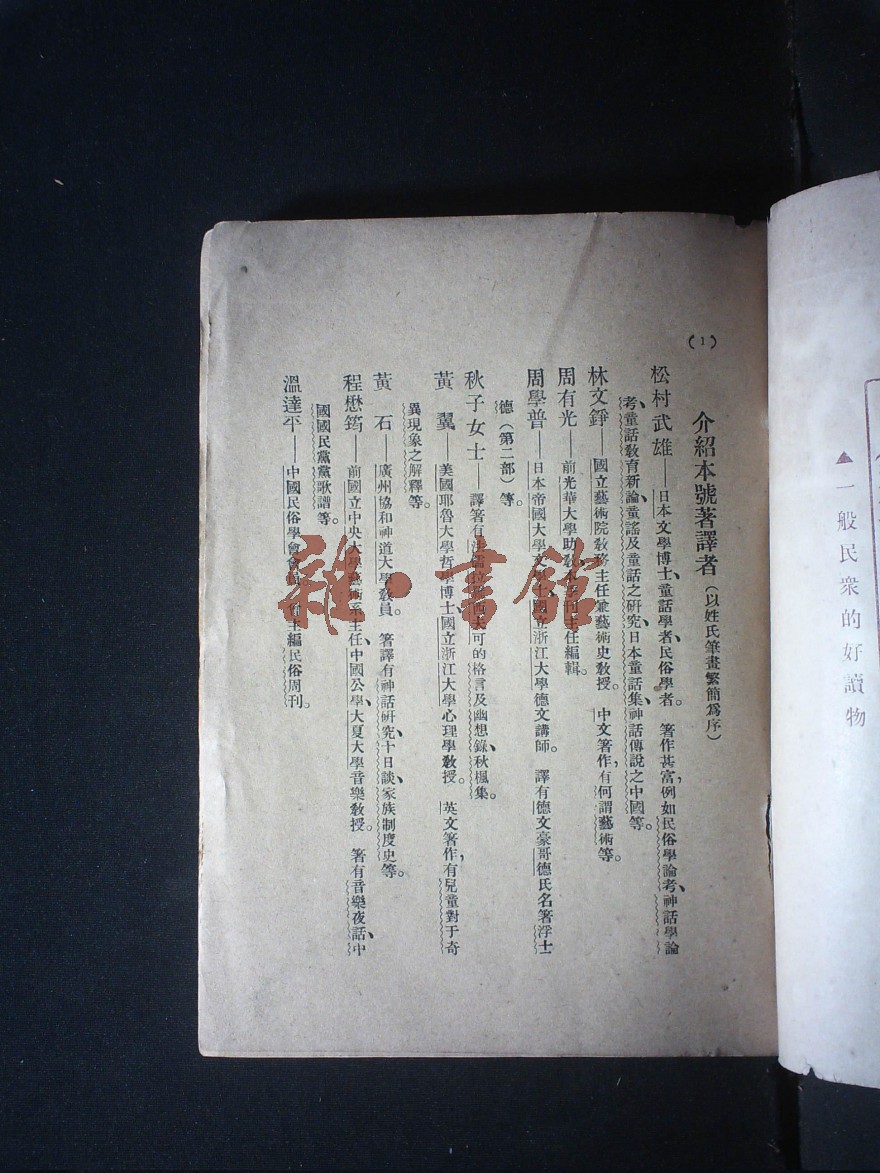 (1)
介紹本號著譯者(以姓氏筆畫繁簡爲序)
松村武雄——日本文學博士、童話學者、民俗學者。 著作甚富,例如民俗學論考、神話學論
考、童話敎育新論、童謠及童話之硏究、日本童話集、神話傳說之中國等。
林文錚——國立藝術院敎務主任兼藝術史敎授。 中文著作,有何謂藝術等。
周有光——前光華大學助敎本季刊主任編輯。
周學普——日本帝國大學文學士、國立浙江大學德文講師。 譯有德文豪哥德氏名著浮士
德(第二部)等。
秋子女士——譯著有可的格言及幽想錄、秋楓集。
黃 翼——美國耶魯大學哲學博士、國立浙江大學心理學敎授。 英文著作,有兒童對于奇
異現象之解釋等。
黃 石——廣州協和神道大學敎員。 著譯有神話硏究、十日談、家族制度史等。
程懋筠——前國立中央大學藝術系主任、中國公學、大夏大學音樂敎授。 著有音樂夜話、中
國國民黨黨歌譜等。
溫達平——中國民俗學會會主編民俗周刊。
雜·書館
▲一般民衆的好讀物